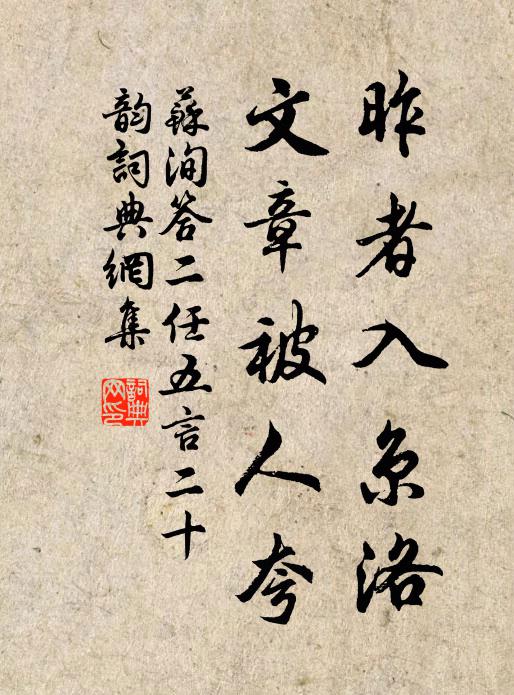 昨者入京洛
文章被人夸
蘇洵答二任五言二十
韵詞典網集
詞典
网印